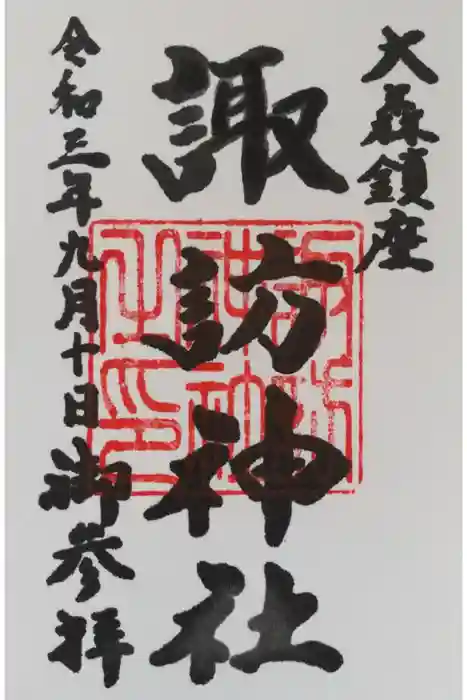 大森鎮座
諏訪神社
令和三年九月十日御参拝
諏訪神社之印